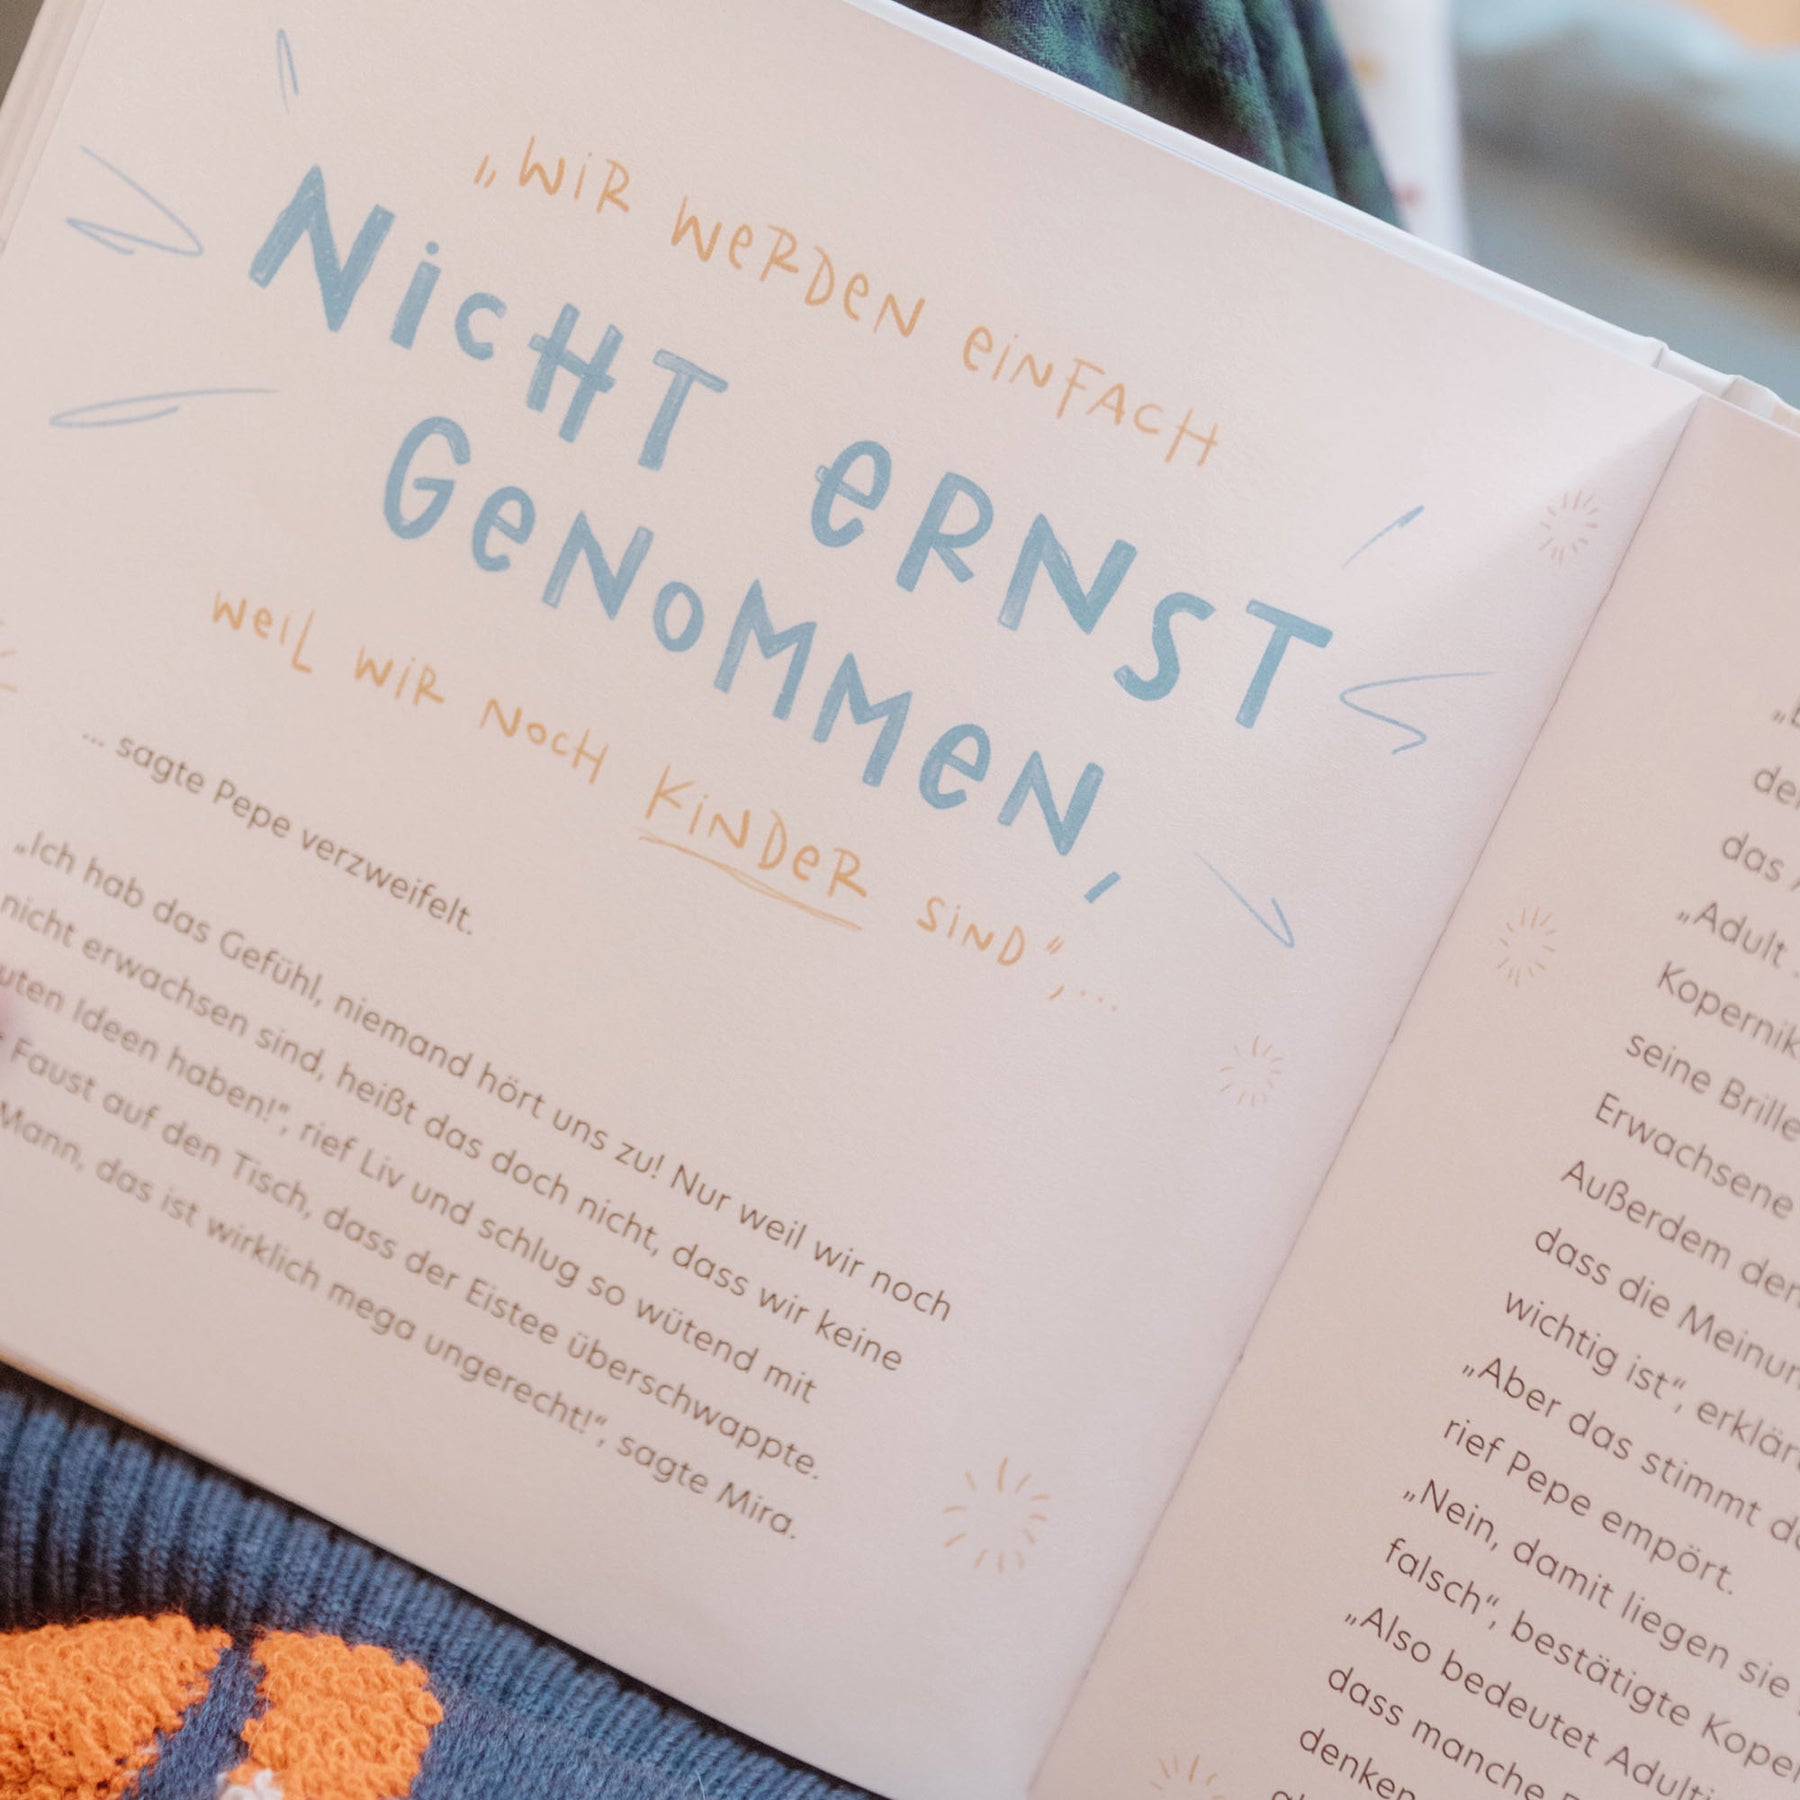 „WiR WeRDeN eiNFACH
NicHT eRNST
GeNoMMeN,
weiL WiR NocH KiNDeR SiND“, ...
... sagte Pepe verzweifelt.
„Ich hab das Gefühl, niemand hört uns zu! Nur weil wir noch
nicht erwachsen sind, heißt das doch nicht, dass wir keine
uten Ideen haben!“, rief Liv und schlug so wütend mit
Faust auf den Tisch, dass der Eistee überschwappte.
Mann, das ist wirklich mega ungerecht!“, sagte Mira.
das
„Adult
Kopernik
seine Brille
Erwachsene
Außerdem
dass die Meinun
wichtig ist“, erklär
„Aber das stimmt
rief Pepe empört.
„Nein, damit liegen sie
falsch“, bestätigte Koper
„Also bedeutet Adulti
dass manche
denken